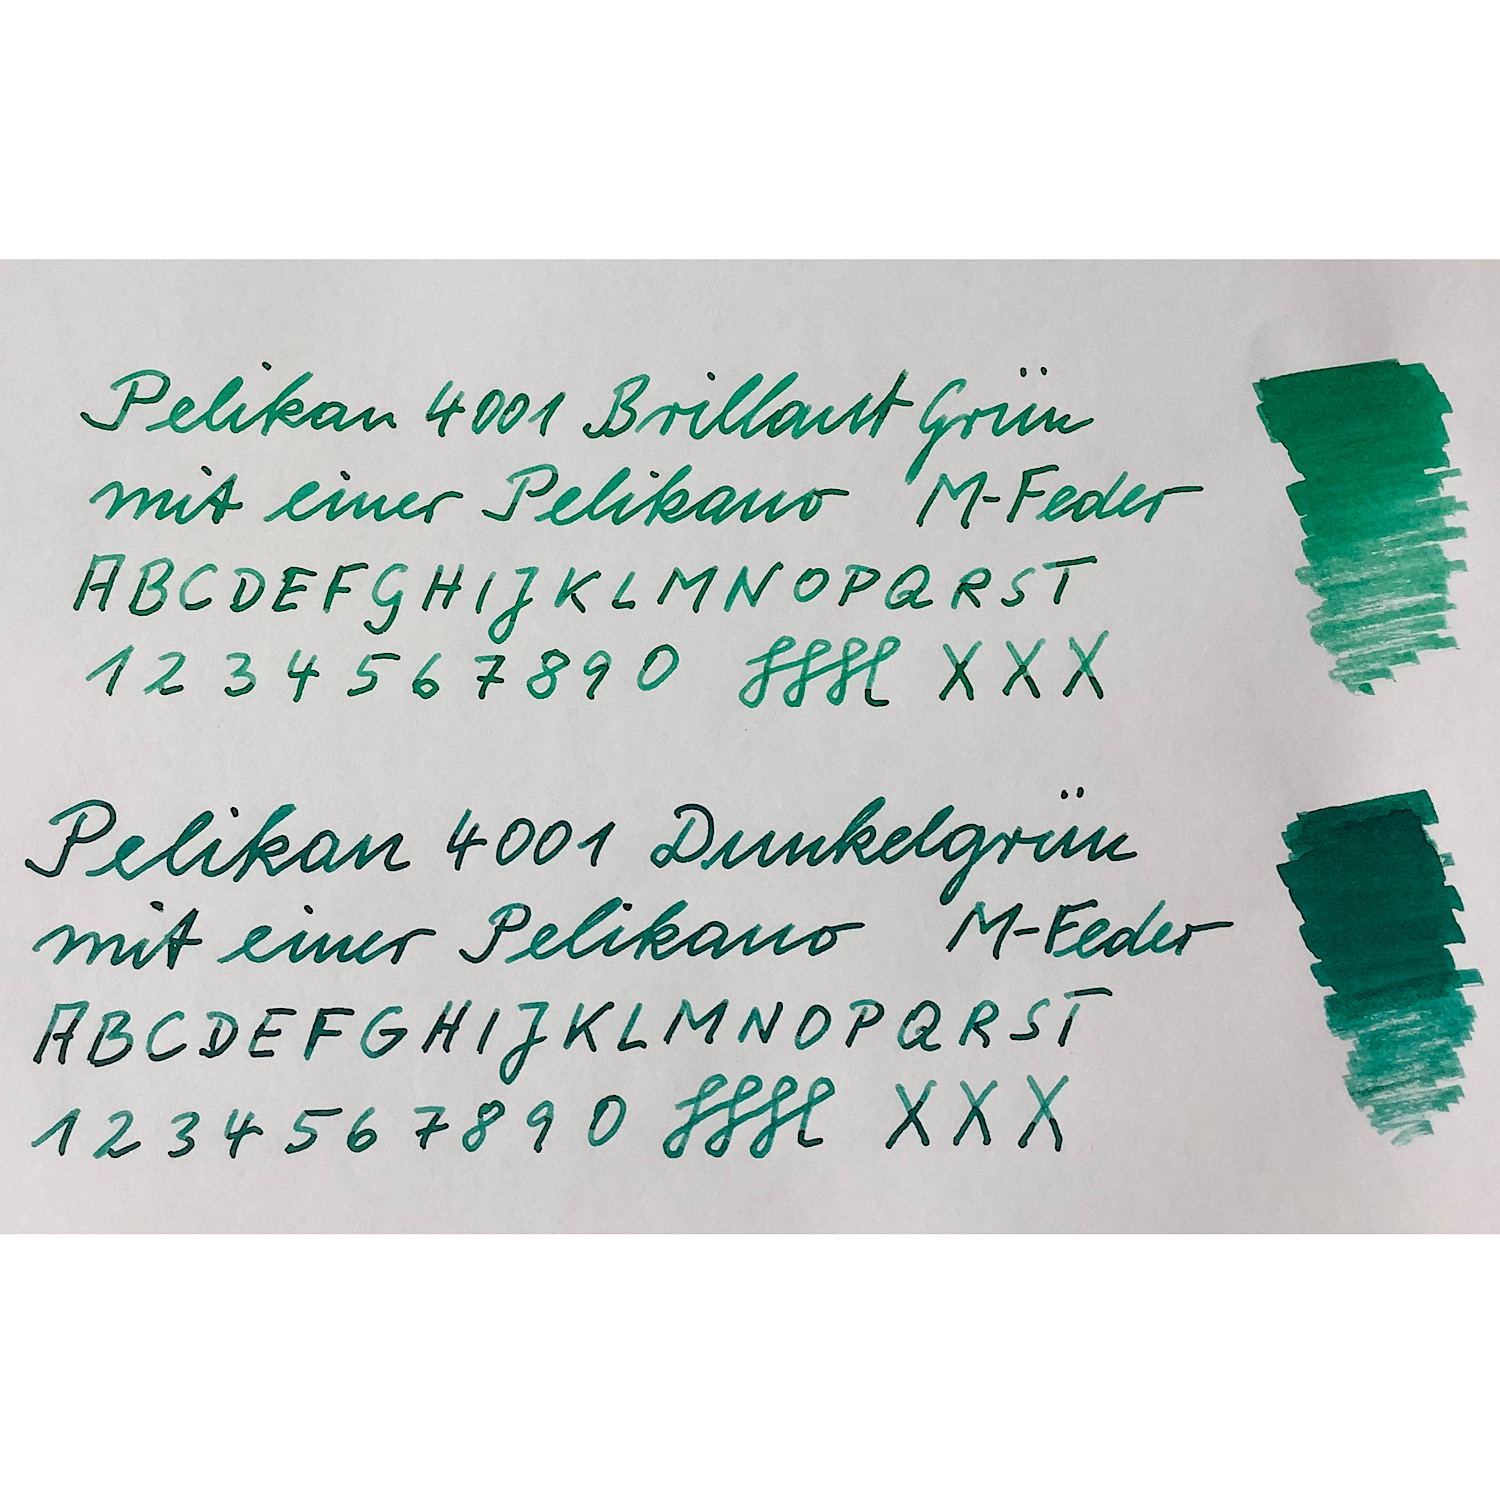 Pelikan 4001 Brillant Grün
mit einer Pelikano M-Feder
ABCDEFGHIJKLMNOPQRST
1234567890 XXX
Pelikan 4001 Dunkelgrün
mit einer Pelikano M-Feder
ABCDEFGHIJKLMNOPQRST
1234567890 XXX